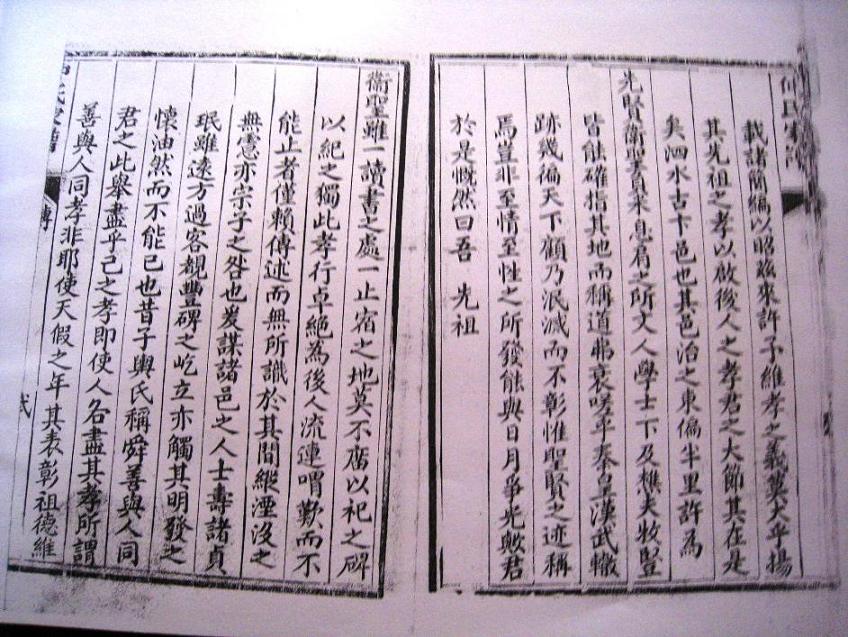 載諸簡編以昭玆來許予維孝之義莫大乎揚
其先祖之孝以啟後人之孝君之大節其在是
矣泗水古卞邑也其邑治之東偏半里許為
先賢衛聖負米息肩之所文人學士下及樵夫牧豎
皆能確指其地而稱道弗衰嗟乎秦皇漢武轍
跡幾徧天下顧乃泯滅而不彰惟聖賢之迹稱
焉豈非至情至性之所發能與日月爭光歟君
於是慨然曰吾 先祖
衛聖雖一讀書之處一止宿之地莫不廟以祀之碑
以紀之獨此孝行卓絕為後人流連喟歎而不
能止者僅賴傳述而無所識於其間縱湮沒之
無慮亦宗子之咎也爰謀諸邑之人士壽諸貞
珉雖遠方過客覩豐碑之屹立亦觸其明發之
懷油然而不能已也昔子輿氏稱舜善與人同
君之此舉盡乎己之孝即使人各盡其孝所謂
善與人同孝非耶使天假之年其表彰祖德維
傳
弍